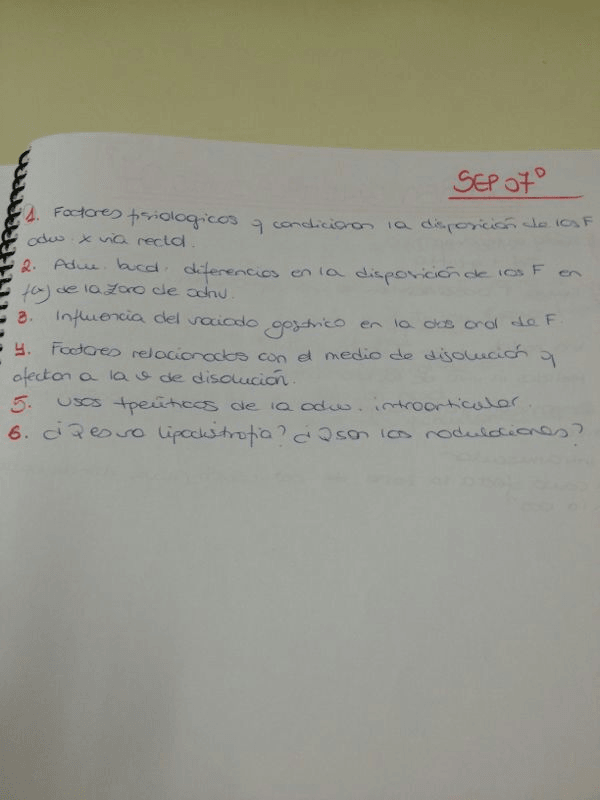 SEP 07º
1. Factores fisiologicos q condicionan la disposición de los F
adm. x via rectal.
2. Adm. bucal. diferencias en la disposición de los F en
f(x) de la zona de admi.
3. Influencia del vaciado gastrico en la abs oral de F.
4. Factores relacionados con el medio de disolución q
afectan a la v de disolución.
5. Usos tpeúticos de la adm. intraarticular.
6. ¿Q es una lipodistrofia? ¿Q son las nodulaciones?